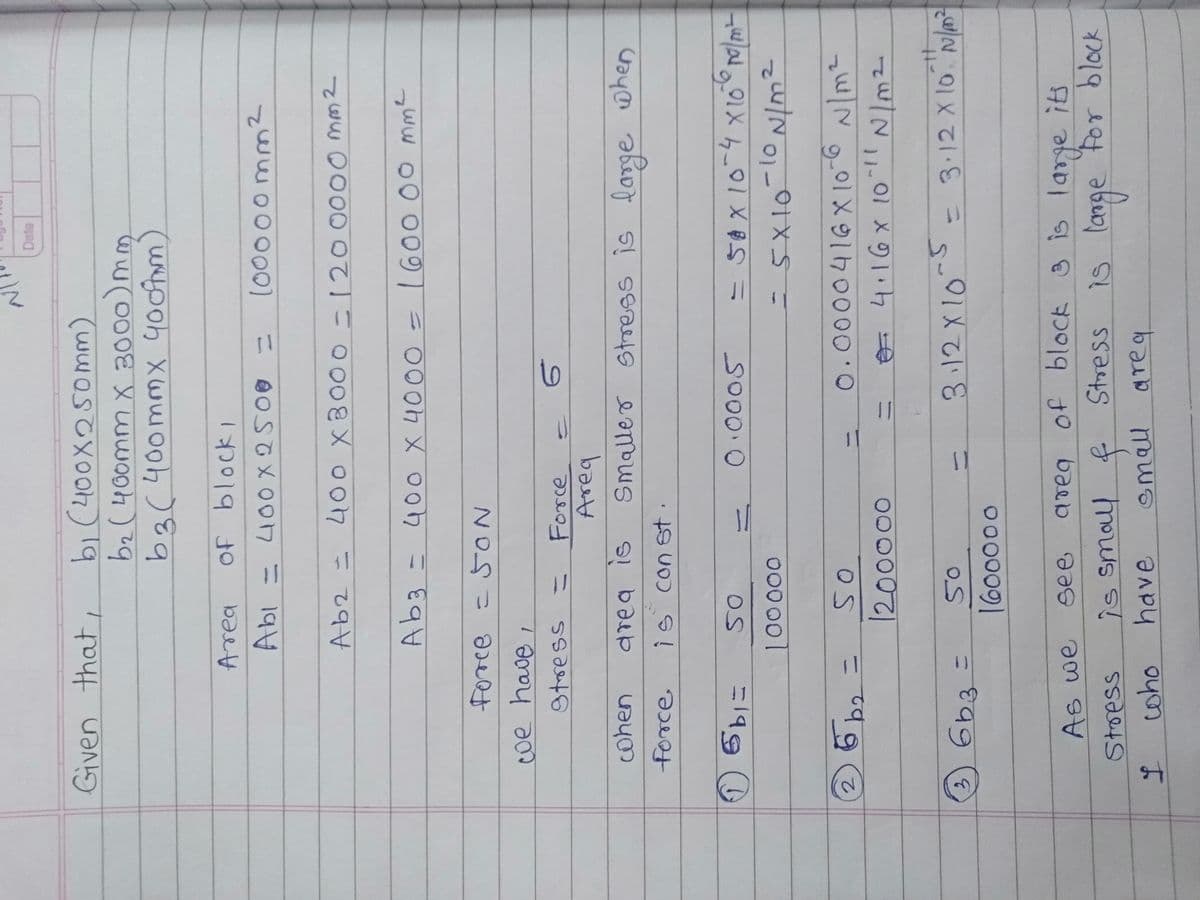 Date
Given that, b1 (400x250mm)
b2 (400mm x 3000)mm
b3 (400mm x 400mm)
Area of block 1
Ab1 = 400 x 2500 = 100000mm²
Ab2 = 400 x 3000 = 1200000mm²
Ab3 = 400 x 4000 = 1600000 mm²
Force = 50N
we have,
Stress = Force / Area = σ
when area is smaller stress is large when
force is const.
① σb1 = 50 / 100000 = 0.0005 = 5 x 10-4 x 10-6 N/m²
= 5x10-10 N/m²
② σb2 = 50 / 1200000 = 0.0000416 x 10-6 N/m²
= 4.16 x 10-11 N/m²
③ σb3 = 50 / 1600000 = 3.12 x 10-5 = 3.12 x 10-11 N/m²
As we see area of block 3 is large its
stress is small & stress is large for block
1 who have small area